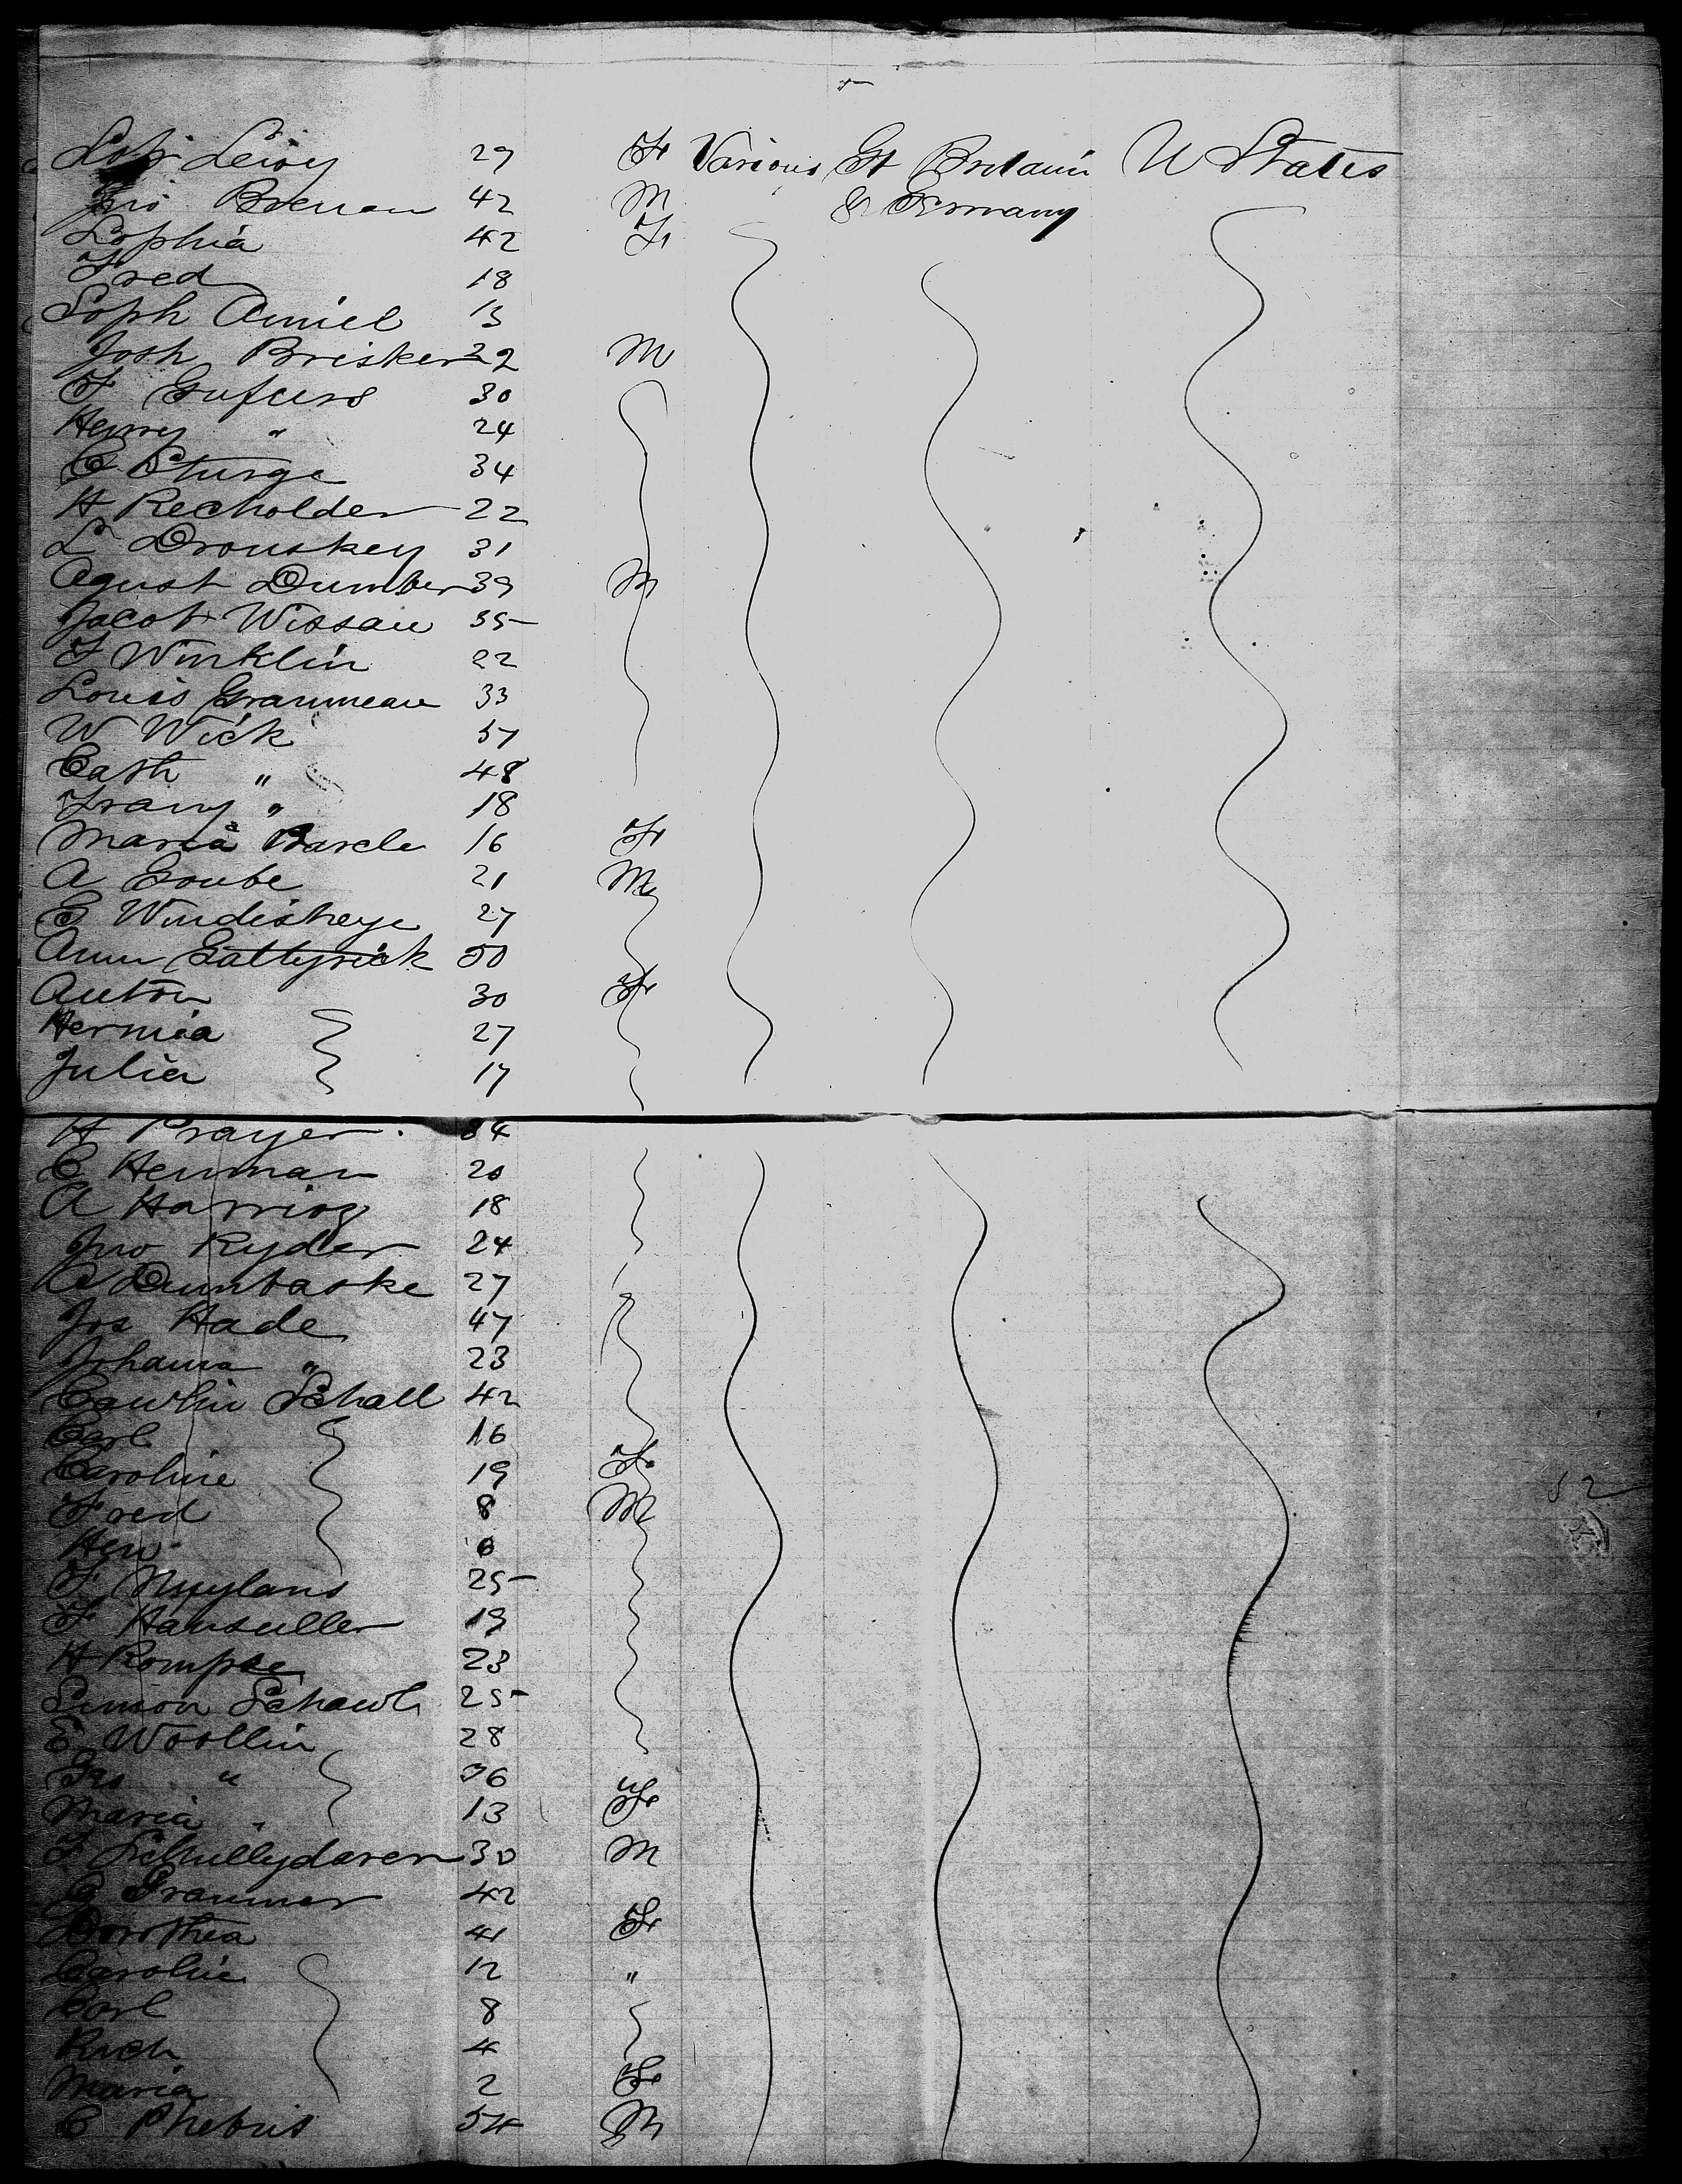 Leroy 29 F Various Gt Britain U States
Jno Brenan 42 M & Germany
Sophia 42 F
Fred 18
Soph Amiel 13
Josh Brisker 22 M
F Gufurs 30
Henry " 24
C Sturge 34
H Recholder 22
L Drouskey 31
Agust Dumber 39 M
Jacob Wissau 35
F Winklin 22
Louis Graumeau 33
W Wick 57
Cath " 48
Frany " 18
Maria Barcle 16 F
A Goube 21 M
G Windisheye 27
Ann Gattyrick 50
Anton 30 F
Hermia 27
Julia 17
H Prayer 34
C Henman 20
A Harriog 18
Jno Ryder 24
A Dumbaske 27
Jos Hade 47
Johanna " 23
Cawlin Schall 42
Carl 16
Caroline 19 F
Fred 8 M
Hen 6
F Nuylans 25
F Hausuller 19
H Rompse 23
Simon Schawl 25
E Woollin 28
" 36
Maria " 13 F
F Schullydaren 30 M
C Graumer 42
Dorothea 41 F
Caroline 12 "
Carl 8
Rich 4
Maria 2 F
C Phebus 54 M
52